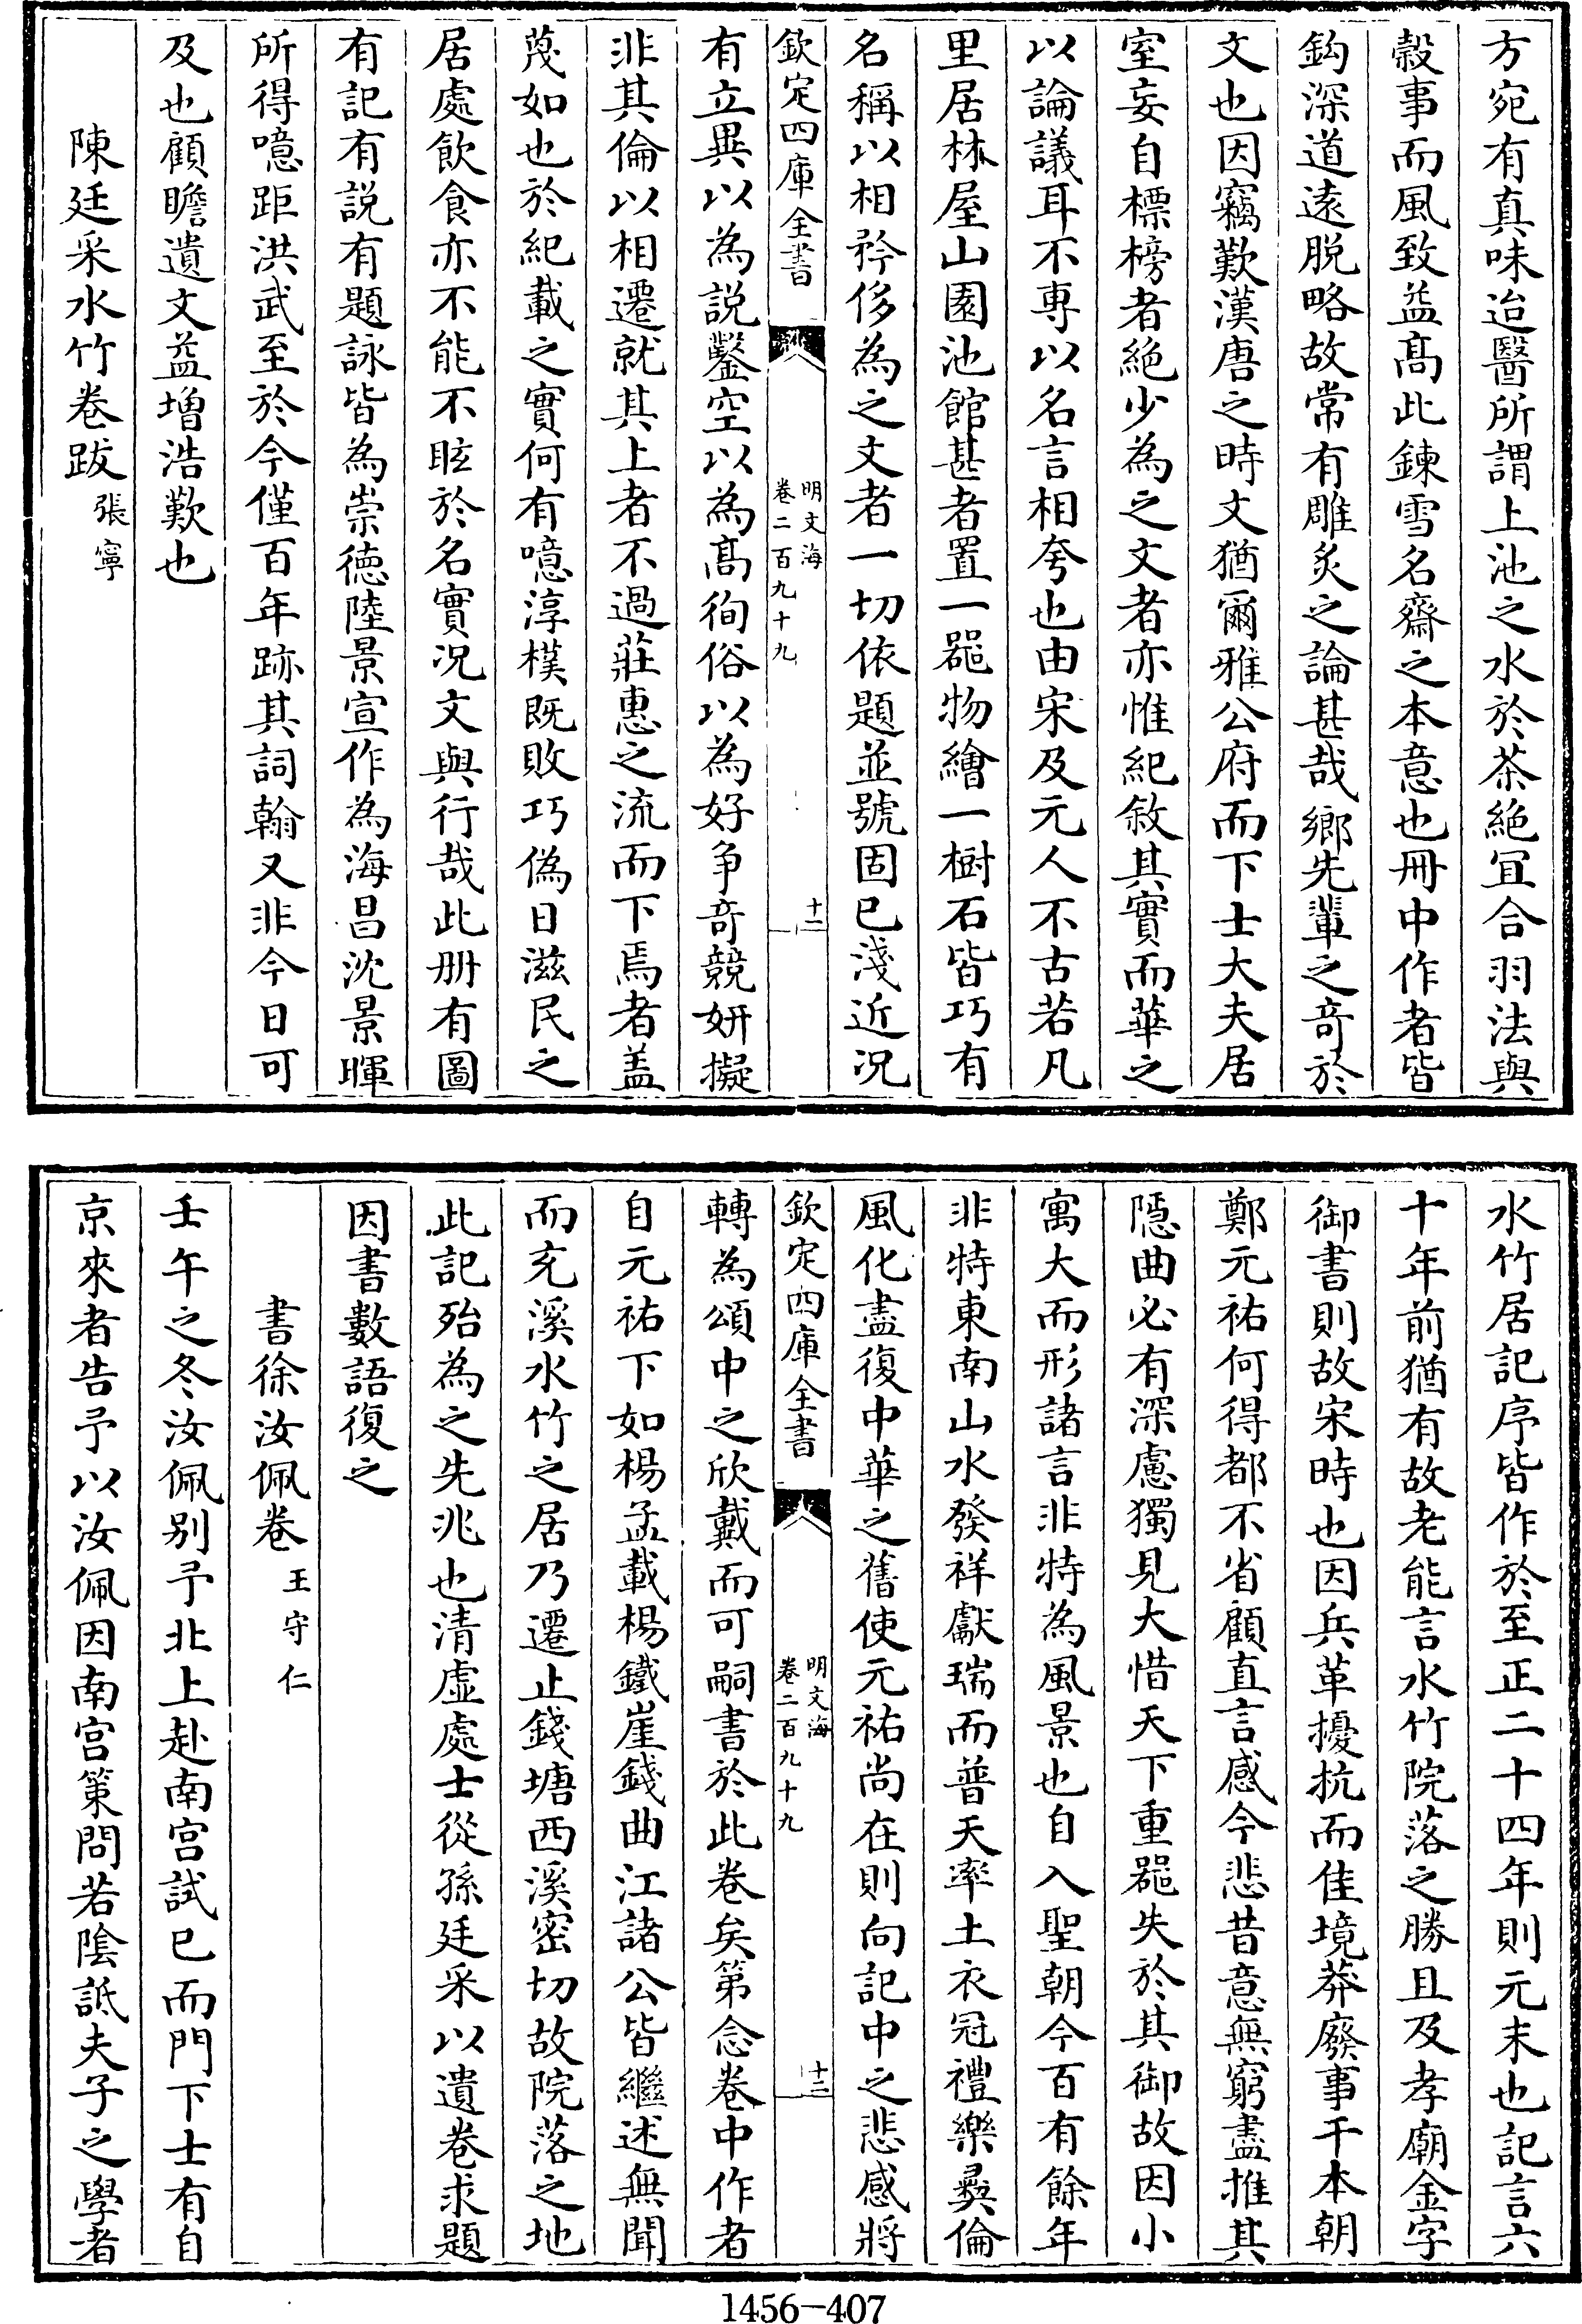 方宛有真味迨醫所謂上池之水於茶絶宜合羽法與
穀事而風致益髙此鍊雪名齋之本意也冊中作者皆
鈎深道遠脱略故常有雕炙之論甚哉鄉先輩之竒於
文也因竊歎漢唐之時文猶爾雅公府而下士大夫居
室妄自標榜者絶少為之文者亦惟紀敘其實而華之
以論議耳不專以名言相夸也由宋及元人不古若凡
里居林屋山園池館甚者置一噐物繪一樹石皆巧有
名稱以相矜侈為之文者一切依題並號固已淺近况
欽定四庫全書
明文海
卷二百九十九
十二
有立異以為説鑿空以為髙徇俗以為好争竒競妍擬
非其倫以相遷就其上者不過莊惠之流而下焉者盖
蔑如也於紀載之實何有噫淳樸既敗巧偽日滋民之
居處飲食亦不能不眩於名實况文與行哉此册有圖
有記有説有題詠皆為崇德陸景宣作為海昌沈景暉
所得噫距洪武至於今僅百年跡其詞翰又非今日可
及也顧瞻遺文益增浩歎也
陳廷采水竹卷跋 張寧
水竹居記序皆作於至正二十四年則元末也記言六
十年前猶有故老能言水竹院落之勝且及孝廟金字
御書則故宋時也因兵革擾抗而佳境莽廢事干本朝
鄭元祐何得都不省顧直言感今悲昔意無窮盡推其
隠曲必有深慮獨見大惜天下重噐失於其御故因小
寓大而形諸言非特為風景也自入聖朝今百有餘年
非特東南山水發祥獻瑞而普天率土衣冠禮樂彞倫
風化盡復中華之舊使元祐尚在則向記中之悲感將
欽定四庫全書
明文海
卷二百九十九
十三
轉為頌中之欣戴而可嗣書於此卷矣第念卷中作者
自元祐下如楊孟載楊鐵崖錢曲江諸公皆繼述無聞
而充溪水竹之居乃遷止錢塘西溪密切故院落之地
此記殆為之先兆也清虛處士從孫廷采以遺卷求題
因書數語復之
書徐汝佩卷 王守仁
壬午之冬汝佩别予北上赴南宫試已而門下士有自
京來者告予以汝佩因南宫策問若陰詆夫子之學者
1456-407